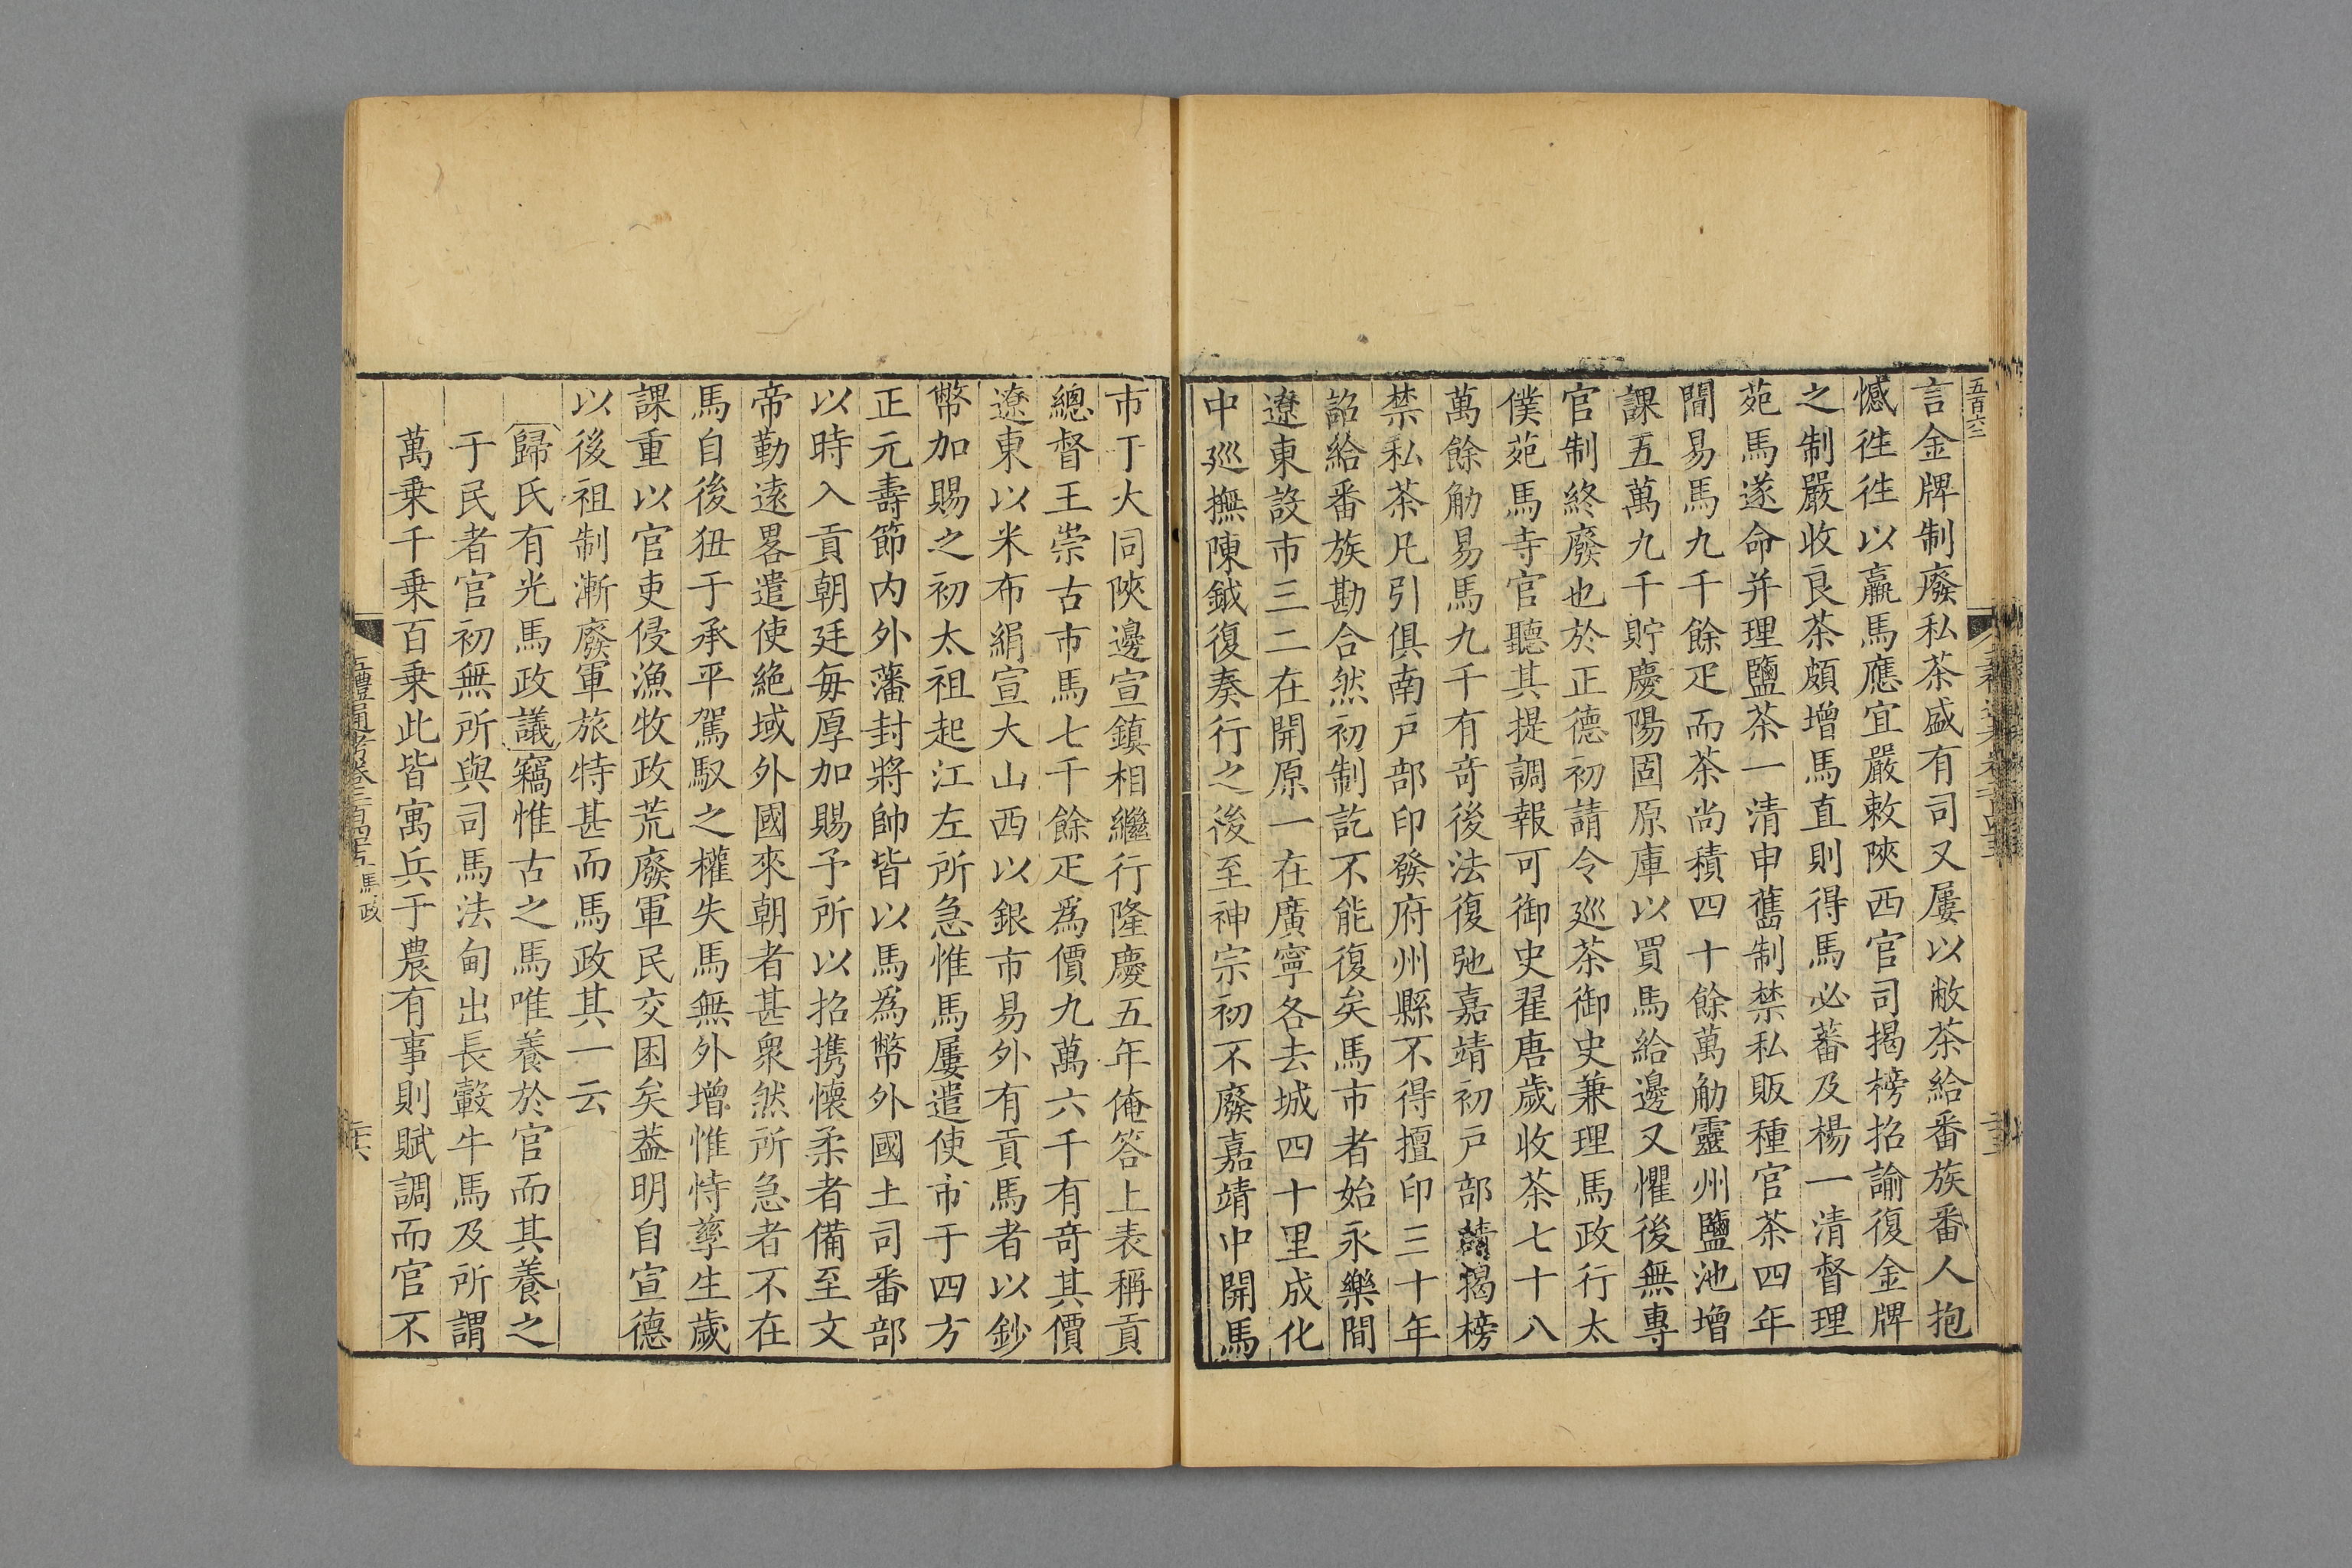 五百六二
言金牌制廢私茶盛有司又屢以敝茶給番族番人抱
憾徃徃以羸馬應宜嚴敕陝西官司揭榜招諭復金牌
之制嚴收良茶頗增馬直則得馬必蕃及楊一清督理
苑馬遂命并理鹽茶一清申舊制禁私販種官茶四年
間易馬九千餘疋而茶尚積四十餘萬觔靈州鹽池增
課五萬九千貯慶陽固原庫以買馬給邊又懼後無專
官制終廢也於正德初請令巡茶御史兼理馬政行太
僕苑馬寺官聽其提調報可御史翟唐歲收茶七十八
萬餘觔易馬九千有奇後法復弛嘉靖初戶部請揭榜
禁私茶凡引俱南戶部印發府州縣不得擅印三十年
詔給番族勘合然初制訖不能復矣馬市者始永樂間
遼東設市三二在開原一在廣寧各去城四十里成化
中巡撫陳鉞復奏行之後至神宗初不廢嘉靖中開馬
市于大同陝邊宣鎮相繼行隆慶五年俺答上表稱貢
總督王崇古市馬七千餘疋爲價九萬六千有奇其價
遼東以米布絹宣大山西以銀市易外有貢馬者以鈔
幣加賜之初太祖起江左所急惟馬屢遣使市于四方
正元壽節内外藩封將帥皆以馬爲幣外國土司番部
以時入貢朝廷每厚加賜予所以招携懷柔者備至文
帝勤遠畧遣使絶域外國來朝者甚衆然所急者不在
馬自後狃于承平駕馭之權失馬無外增惟恃孳生歲
課重以官吏侵漁牧政荒廢軍民交困矣葢明自宣德
以後祖制漸廢軍旅特甚而馬政其一云
歸氏有光馬政議竊惟古之馬唯養於官而其養之
于民者官初無所與司馬法甸出長轂牛馬及所謂
萬乗千乗百乗此皆寓兵于農有事則賦調而官不
五禮通考卷二百四十五 馬政
二十六